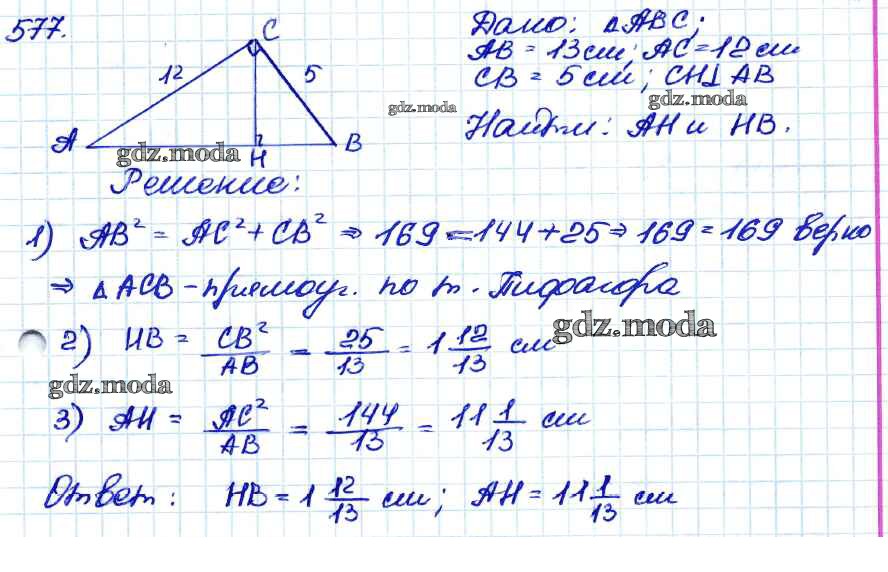 577.
C
12
5
A
H
B
Дано: △ABC;
AB = 13 см; AC = 12 см
CB = 5 см; CH⊥AB
gdz.moda
gdz.moda
Найти: AH и HB.
gdz.moda
Решение:
1) AB² = AC² + CB² ⇒ 169 = 144 + 25 ⇒ 169 = 169 верно
⇒ △ACB - прямоуг. по т. Пифагора
2) HB = CB²/AB = 25/13 = 1 12/13 см
gdz.moda
gdz.moda
3) AH = AC²/AB = 144/13 = 11 1/13 см
Ответ: HB = 1 12/13 см; AH = 11 1/13 см